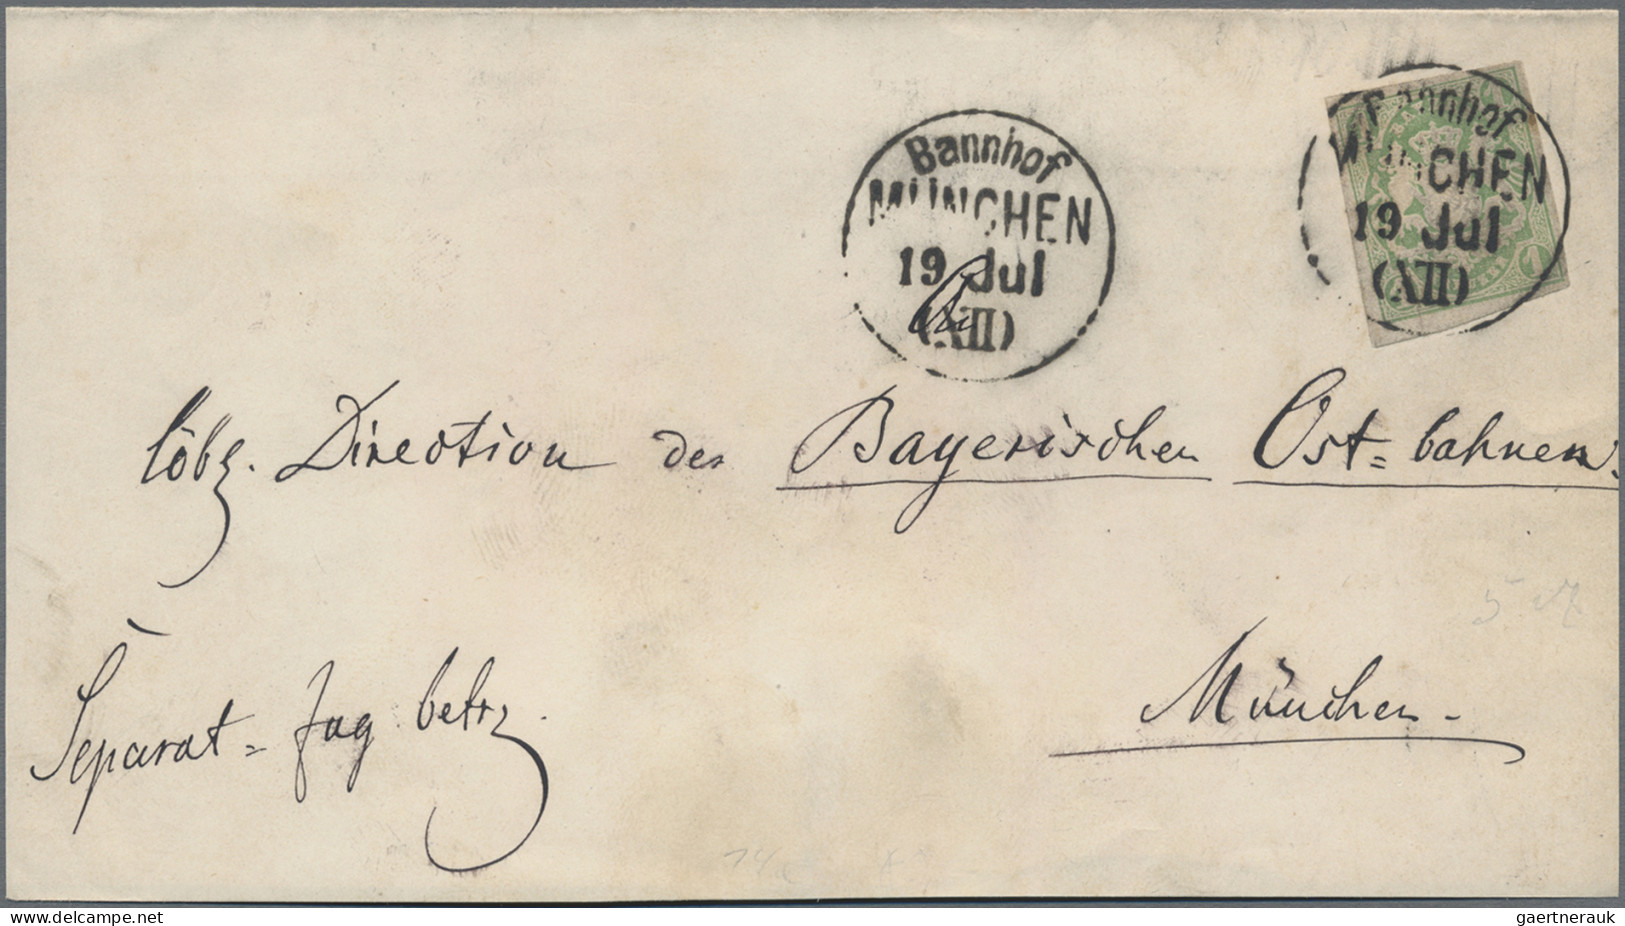 Bahnhof
MÜNCHEN
19 Jul
(XII)
Bahnhof
MÜNCHEN
19 Jul
(XII)
1
An
löbl. Direction der Bayerischen Ost=bahnen.
München.
Separat=Zug betr.
delcampe.net
gaertnerauk